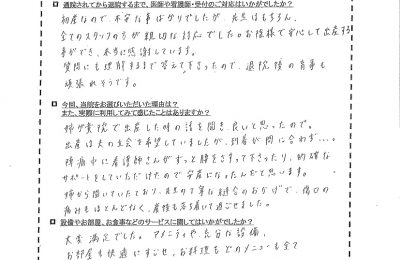 ■ 通院されてから退院するまで、医師や看護師・受付のご対応はいかがでしたか?
初産なので、不安な事ばかりでしたが、先生はもちろん、
全てのスタッフの方が親切な対応でした。お陰様で安心して出産する
事ができ、本当に感謝しています。
質問にも理解するまで答えて下さったので、退院後の育事も
頑張れそうです。
■ 今回、当院をお選びいただいた理由は?
また、実際に利用してみて感じたことはありますか?
姉が貴院で出産した時の話を聞き、良いと思ったので。
出産は夫の立会を希望していましたが、到着が間に合わず…。
陣痛中に看護師さんがずっと腰をさすって下さったり、的確な
サポートをしていただけたので安産になったんだと思います。
姉から聞いていたとおり、先生の丁寧な縫合のおかげで、傷口の
痛みもほとんどなく、産後も落ち着いて過ごせました。
■ 設備やお部屋、お食事などのサービスに関してはいかがでしたか?
大変満足でした。アメニティや充分な設備、
お部屋も快適にすごせ、お料理もどのメニューも全て